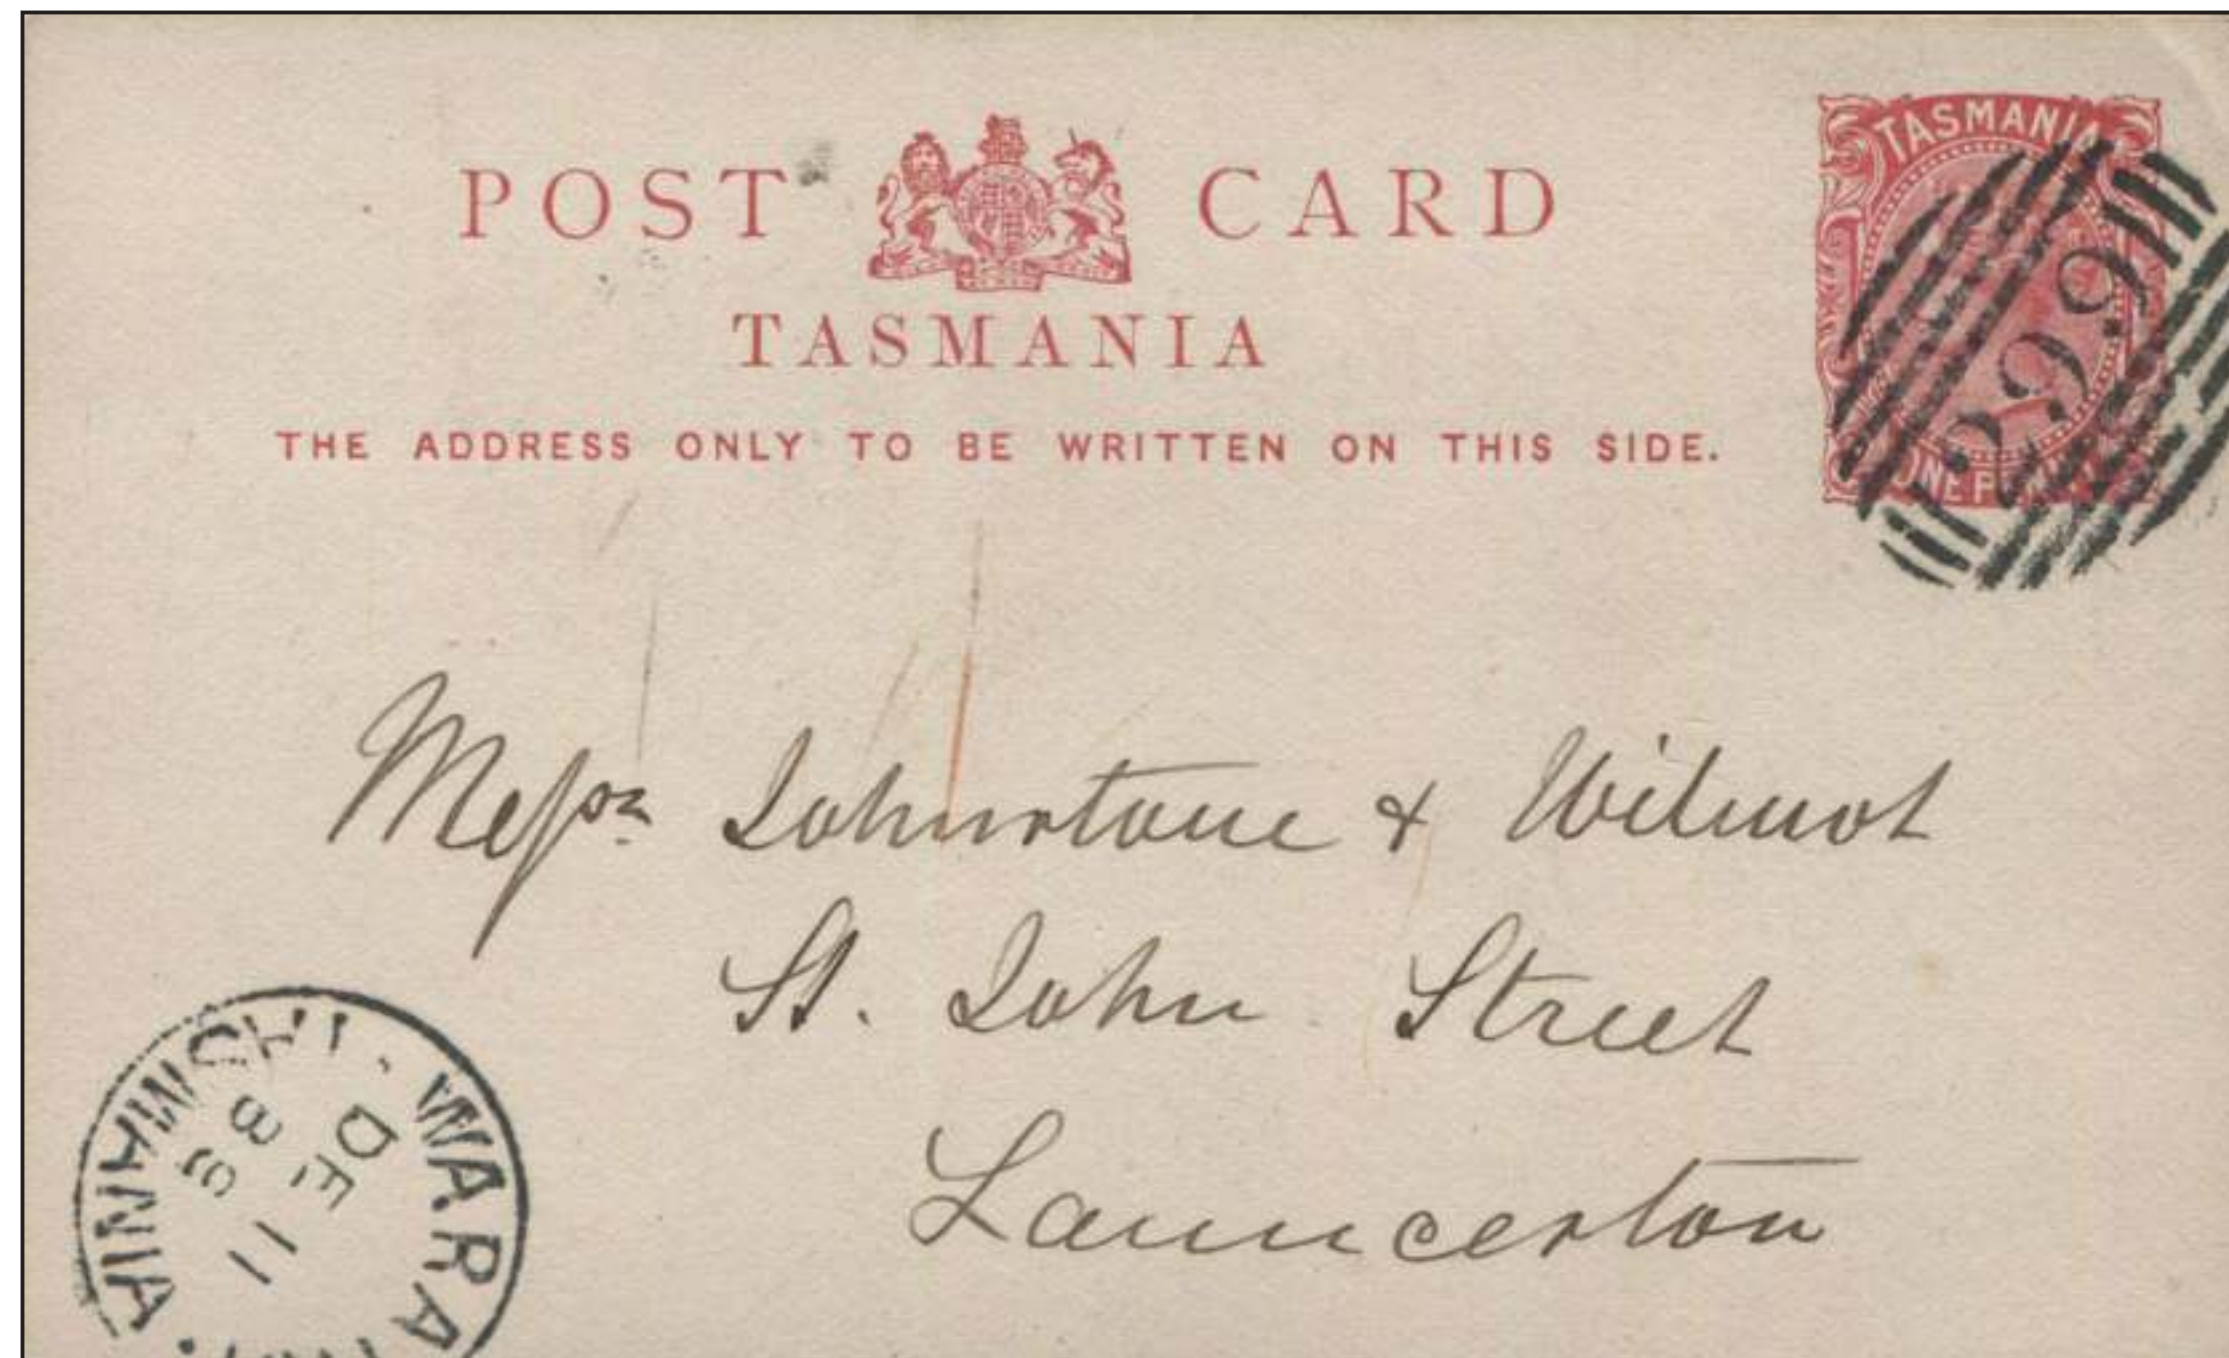 POST CARD
TASMANIA
THE ADDRESS ONLY TO BE WRITTEN ON THIS SIDE.
TASMANIA
ONE PENNY
Messrs Johnstone & Wilmot
St. John Street
Launceston
WARA
DE 11